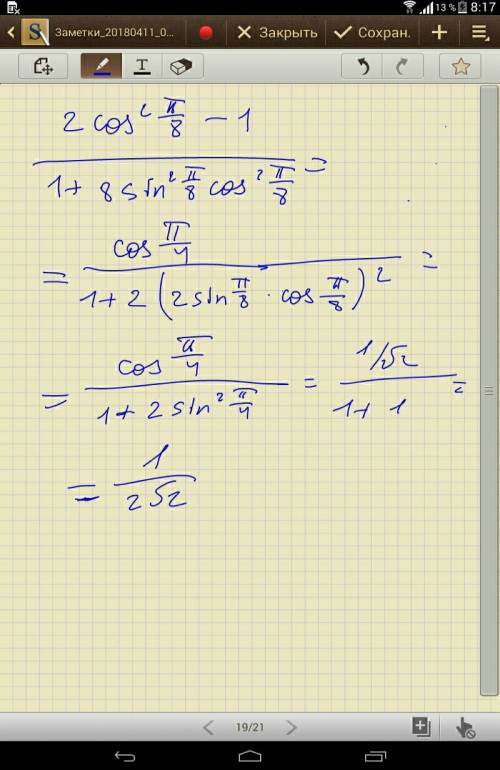 13 % 8:17
Заметки_20180411_0... Закрыть Сохран.
T
2 cos² π/8 − 1
1 + 8 sin² π/8 cos² π/8 =
= cos π/4
1 + 2 (2 sin π/8 · cos π/8)² =
= cos π/4
1 + 2 sin² π/4 = 1/√2
1 + 1 =
= 1
2√2
19/21